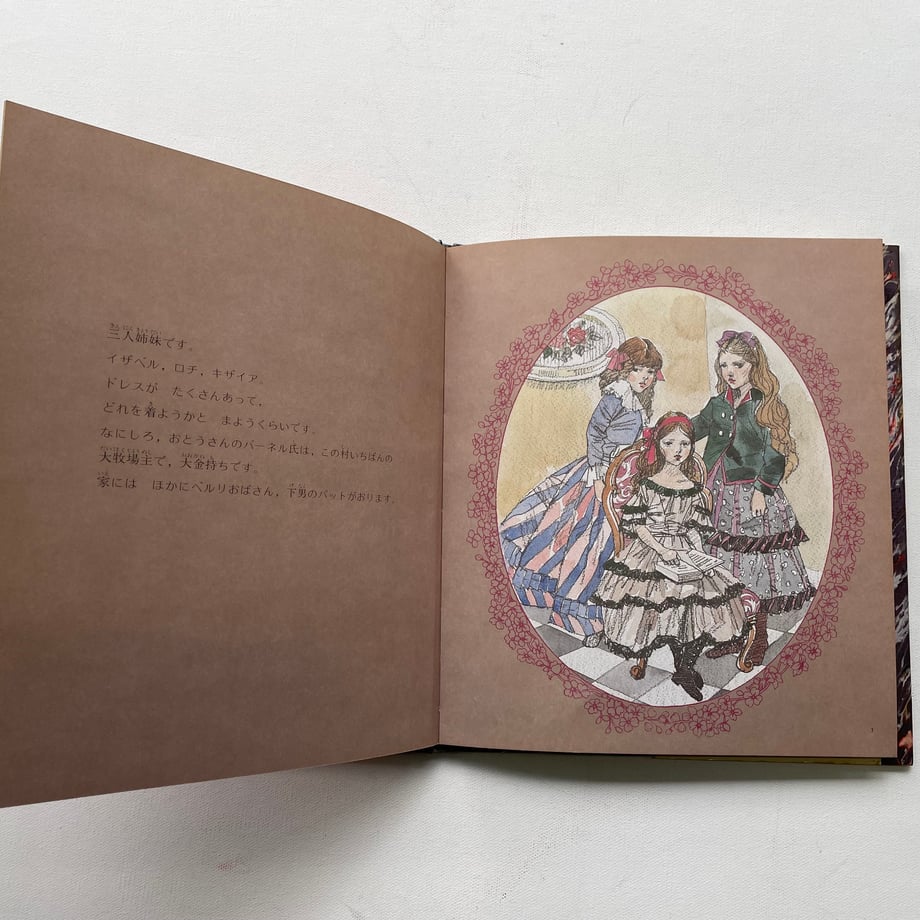 三人姉妹です。
イザベル，ロチ，キザイア。
ドレスが　たくさんあって，
どれを着ようかと　まようくらいです。
なにしろ，おとうさんのバーネル氏は，この村いちばんの
大牧場主で，大金持ちです。
家には　ほかにベルリおばさん，下男のパットがおります。